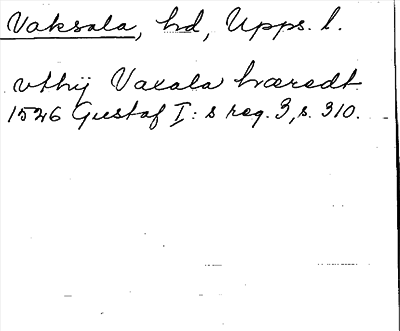 Vaksala, hd, Upps. l.
vthij Vaxala hæredt
1526 Gustaf I:s reg. 3, s. 310.